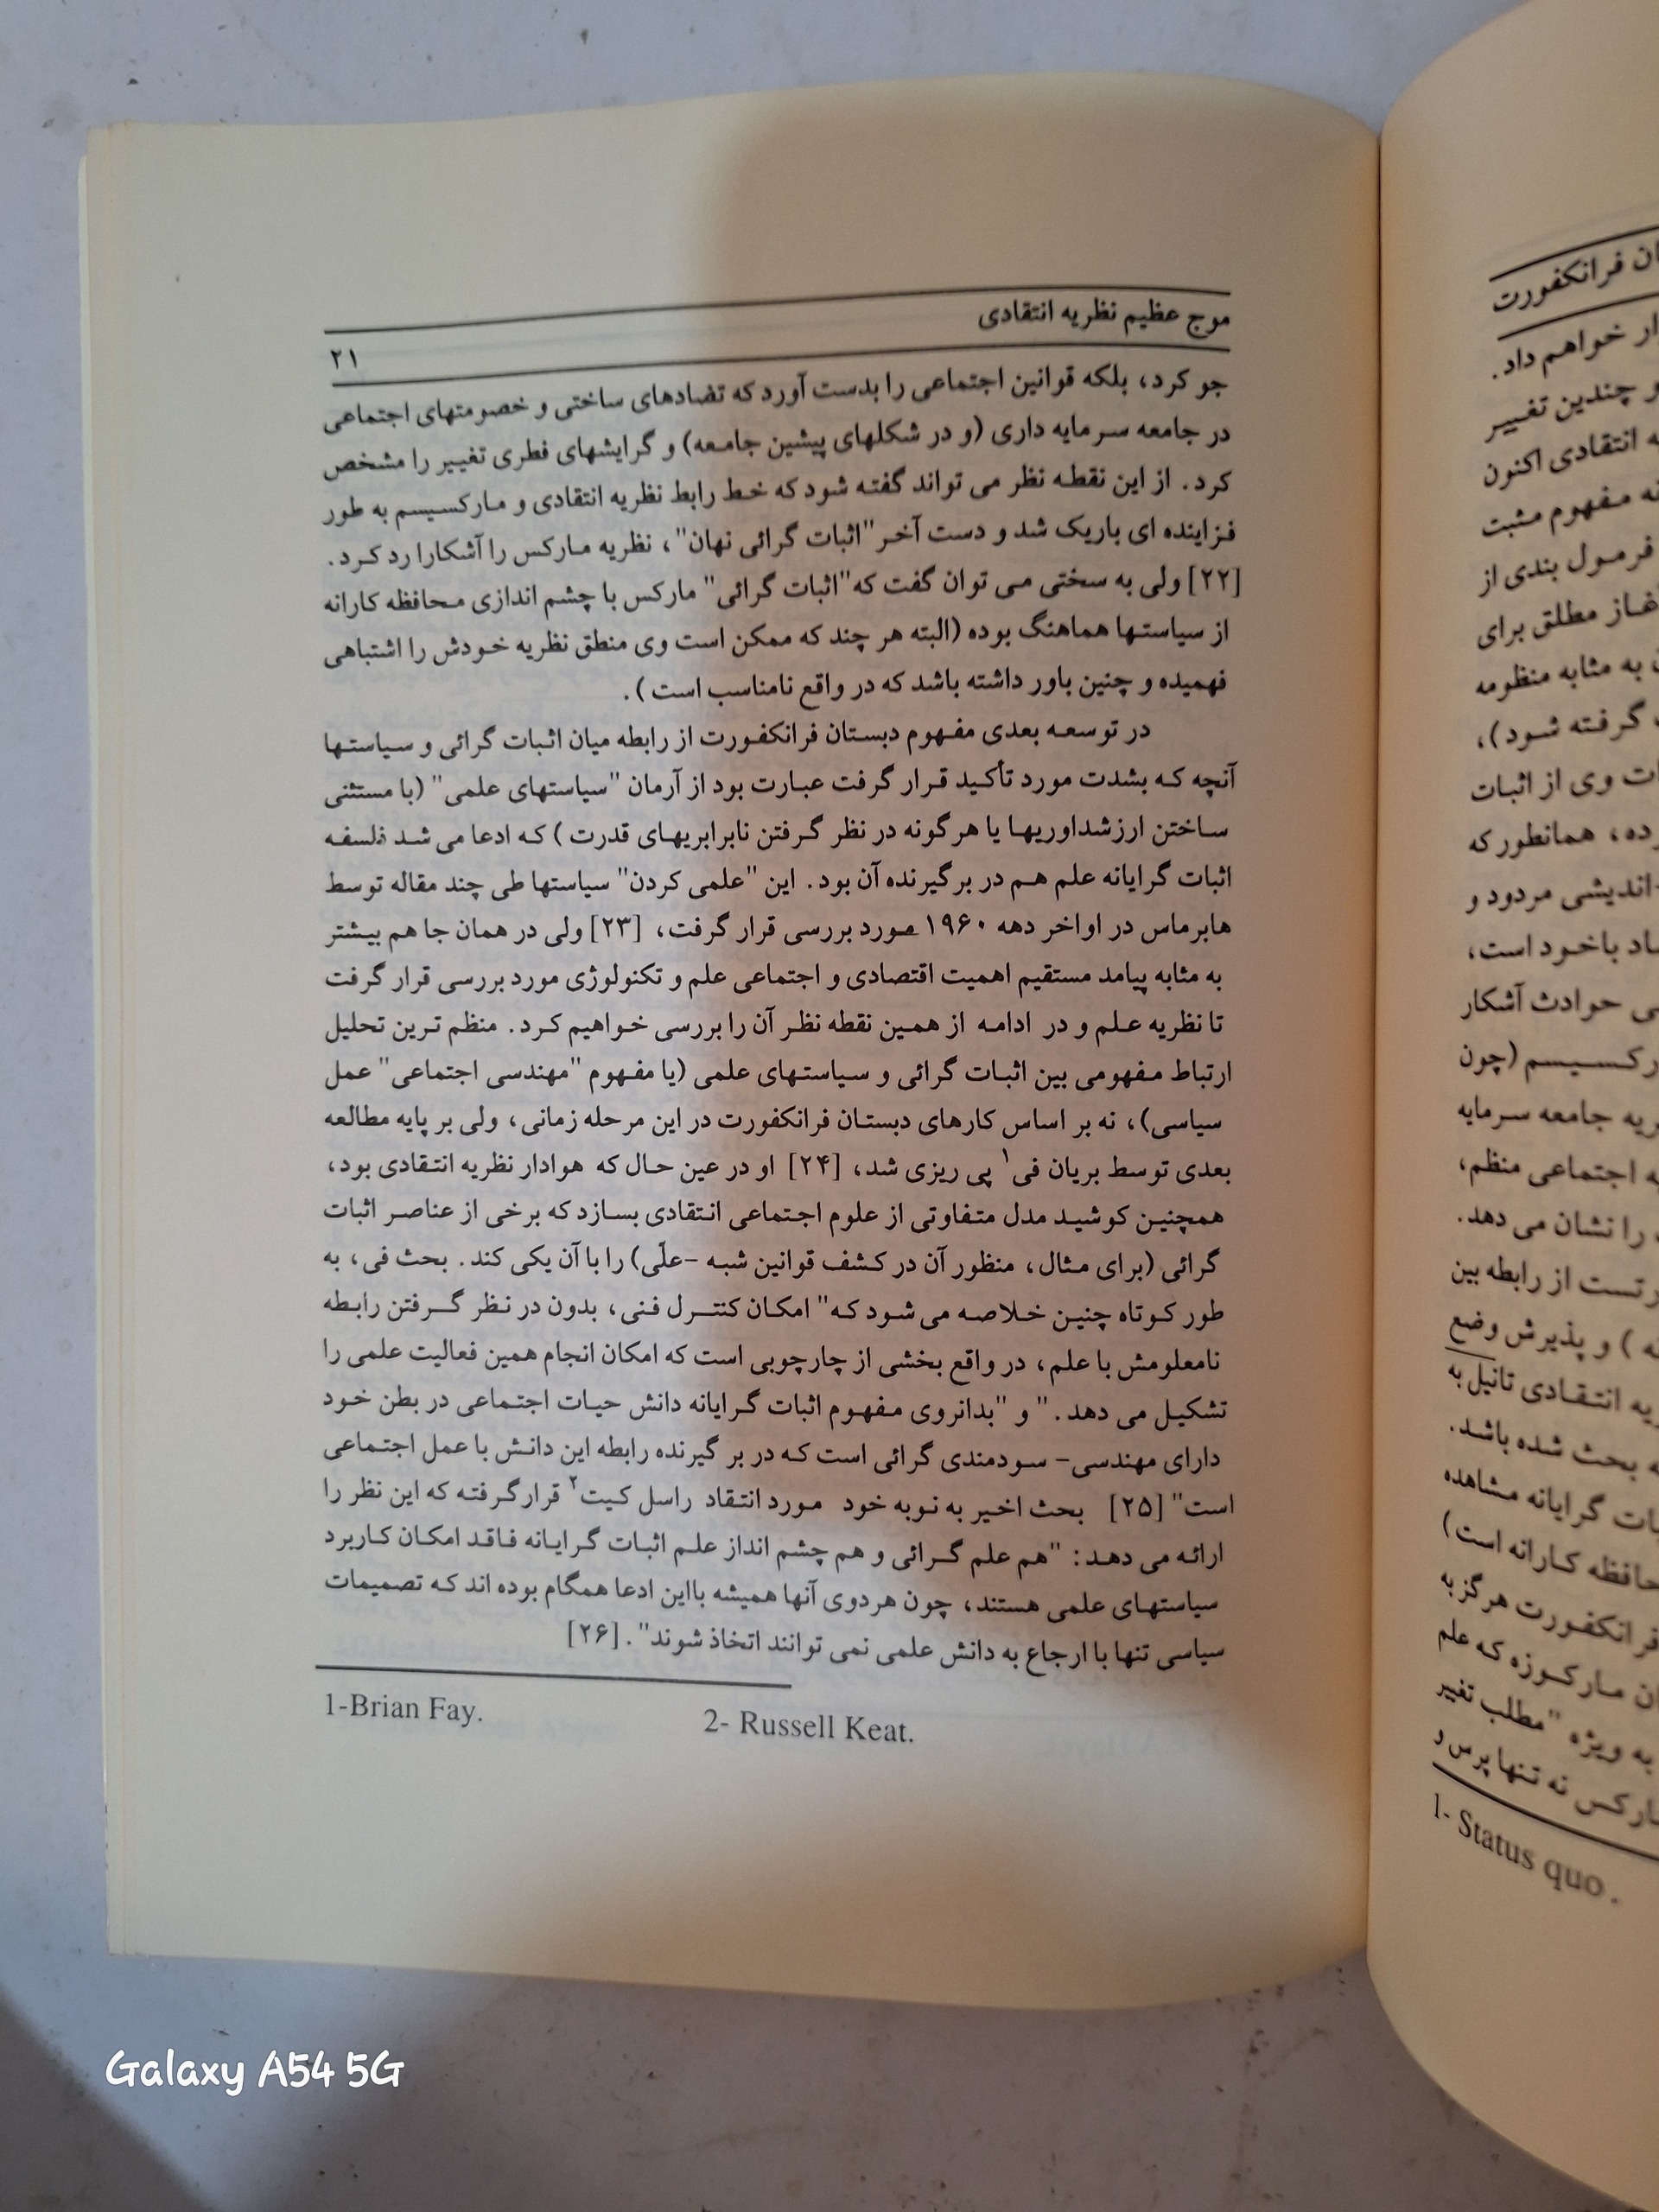 موج عظیم نظریه انتقادی
۲۱
جو کرد، بلکه قوانین اجتماعی را بدست آورد که تضادهای ساختی و خصومتهای اجتماعی
در جامعه سرمایه داری (و در شکلهای پیشین جامعه) و گرایشهای فطری تغییر را مشخص
کرد. از این نقطه نظر می تواند گفته شود که خط رابط نظریه انتقادی و مارکسیسم به طور
فزاینده ای باریک شد و دست آخر "اثبات گرائی نهان"، نظریه مارکس را آشکارا رد کرد.
[۲۲] ولی به سختی می توان گفت که "اثبات گرائی" مارکس با چشم اندازی محافظه کارانه
از سیاستها هماهنگ بوده (البته هر چند که ممکن است وی منطق نظریه خودش را اشتباهی
فهمیده و چنین باور داشته باشد که در واقع نامناسب است).
در توسعه بعدی مفهوم دبستان فرانکفورت از رابطه میان اثبات گرائی و سیاستها
آنچه که بشدت مورد تأکید قرار گرفت عبارت بود از آرمان "سیاستهای علمی" (با مستثنی
ساختن ارزشداوریها یا هرگونه در نظر گرفتن نابرابریهای قدرت) که ادعا می شد فلسفه
اثبات گرایانه علم هم در برگیرنده آن بود. این "علمی کردن" سیاستها طی چند مقاله توسط
هابرماس در اواخر دهه ۱۹۶۰ مورد بررسی قرار گرفت، [۲۳] ولی در همان جا هم بیشتر
به مثابه پیامد مستقیم اهمیت اقتصادی و اجتماعی علم و تکنولوژی مورد بررسی قرار گرفت
تا نظریه علم و در ادامه از همین نقطه نظر آن را بررسی خواهیم کرد. منظم ترین تحلیل
ارتباط مفهومی بین اثبات گرائی و سیاستهای علمی (یا مفهوم "مهندسی اجتماعی" عمل
سیاسی)، نه بر اساس کارهای دبستان فرانکفورت در این مرحله زمانی، ولی بر پایه مطالعه
بعدی توسط بریان فی۱ پی ریزی شد، [۲۴] او در عین حال که هوادار نظریه انتقادی بود،
همچنین کوشید مدل متفاوتی از علوم اجتماعی انتقادی بسازد که برخی از عناصر اثبات
گرائی (برای مثال، منظور آن در کشف قوانین شبه -علّی) را با آن یکی کند. بحث فی، به
طور کوتاه چنین خلاصه می شود که "امکان کنترل فنی، بدون در نظر گرفتن رابطه
نامعلومش با علم، در واقع بخشی از چارچوبی است که امکان انجام همین فعالیت علمی را
تشکیل می دهد." و "بدانروی مفهوم اثبات گرایانه دانش حیات اجتماعی در بطن خود
دارای مهندسی- سودمندی گرائی است که در بر گیرنده رابطه این دانش با عمل اجتماعی
است" [۲۵] بحث اخیر به نوبه خود مورد انتقاد راسل کیت۲ قرارگرفته که این نظر را
ارائه می دهد: "هم علم گرائی و هم چشم انداز علم اثبات گرایانه فاقد امکان کاربرد
سیاستهای علمی هستند، چون هردوی آنها همیشه بااین ادعا همگام بوده اند که تصمیمات
سیاسی تنها با ارجاع به دانش علمی نمی توانند اتخاذ شوند". [۲۶]
1-Brian Fay. 2- Russell Keat.
ان فرانکفورت
ار خواهم داد.
و چندین تغییر
ه انتقادی اکنون
نه مفهوم مثبت
فرمول بندی از
غاز مطلق برای
به مثابه منظومه
گرفته شود)،
ات وی از اثبات
ده، همانطور که
-اندیشی مردود و
ماد باخود است،
ی حوادث آشکار
رکسیسم (چون
ریه جامعه سرمایه
ه اجتماعی منظم،
را نشان می دهد.
رتست از رابطه بین
نه) و پذیرش وضع
یه انتقادی تانیل به
ه بحث شده باشد.
بات گرایانه مشاهده
حافظه کارانه است)
فرانکفورت هرگز به
ان مارکوزه که علم
به ویژه "مطلب تغییر
مارکس نه تنها پرس و
1- Status quo.
Galaxy A54 5G